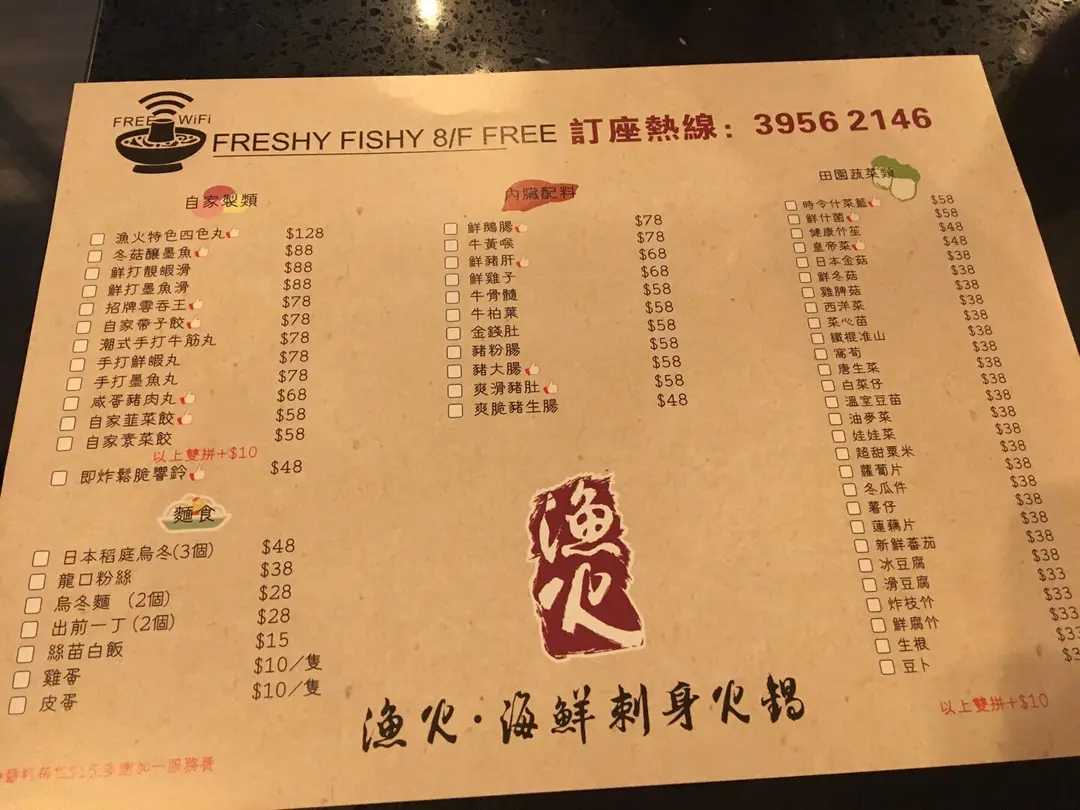 FREE WiFi
FRESHY FISHY 8/F FREE 訂座熱線：3956 2146
自家製類
漁火特色四色丸 $128
冬菇釀墨魚 $88
鮮打靚蝦滑 $88
鮮打墨魚滑 $88
招牌雲吞王 $78
自家帶子餃 $78
潮式手打牛筋丸 $78
手打鮮蝦丸 $78
手打墨魚丸 $78
咸蛋豬肉丸 $68
自家韮菜餃 $58
自家素菜餃 $58
以上雙拼+$10
即炸鬆脆響鈴 $48
麵食
日本稻庭烏冬(3個) $48
龍口粉絲 $38
烏冬麵 (2個) $28
出前一丁(2個) $28
絲苗白飯 $15
雞蛋 $10/隻
皮蛋 $10/隻
內臟配料
鮮鵝腸 $78
牛黃喉 $78
鮮豬肝 $68
鮮雞子 $68
牛骨髓 $58
牛柏葉 $58
金錢肚 $58
豬粉腸 $58
豬大腸 $58
爽滑豬肚 $58
爽脆豬生腸 $48
田園蔬菜類
時令什菜籃 $58
鮮什菌 $58
健康竹笙 $48
皇帝菜 $48
日本金菇 $38
鮮冬菇 $38
雞脾菇 $38
西洋菜 $38
菜心苗 $38
鐵棍准山 $38
萵荀 $38
唐生菜 $38
白菜仔 $38
溫室豆苗 $38
油麥菜 $38
娃娃菜 $38
超甜粟米 $38
蘿蔔片 $38
冬瓜件 $38
薯仔 $38
蓮藕片 $38
新鮮蕃茄 $38
冰豆腐 $38
滑豆腐 $33
炸枝竹 $33
鮮腐竹 $33
生根 $33
豆卜
以上雙拼+$10
漁火
漁火·海鮮刺身火鍋
加一服務費